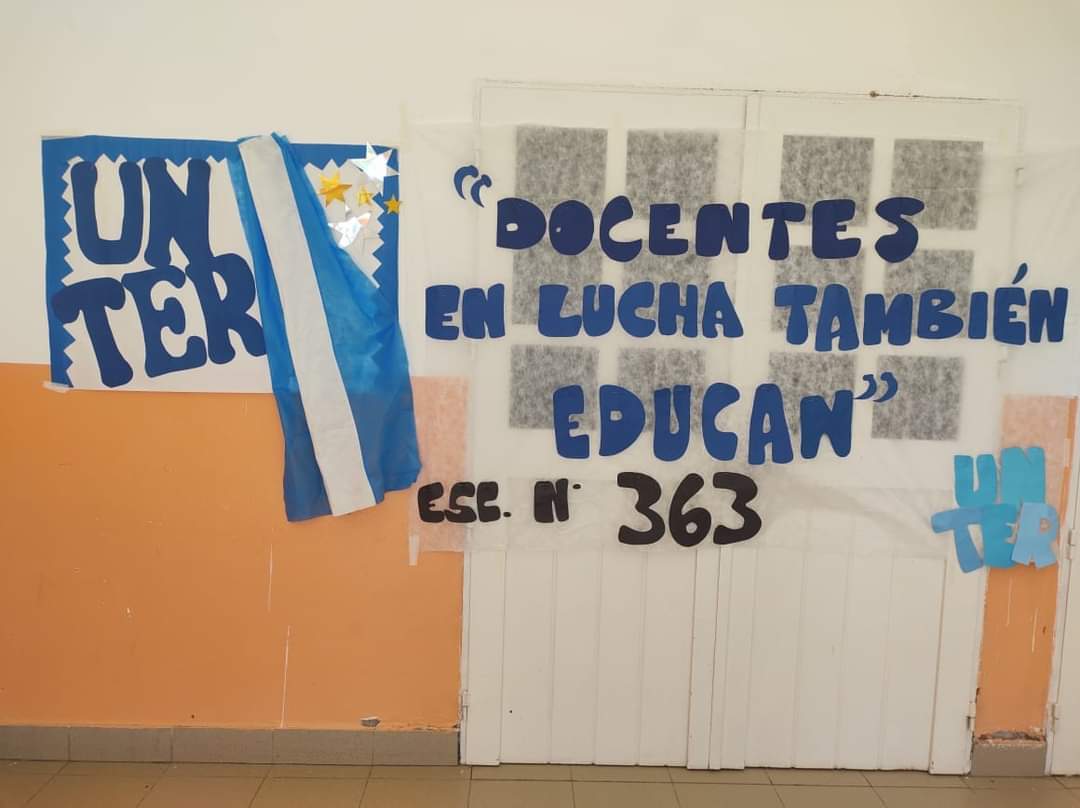 UN
TER
"DOCENTES
EN LUCHA TAMBIÉN
EDUCAN"
ESC. N° 363
UN
TER